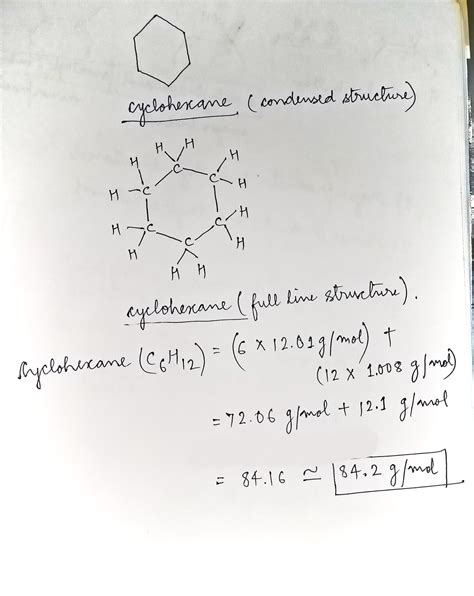 cyclohexane (condensed structure)
H H
H H
H C C H
C
H C C H
H C H
H H
cyclohexane (full line structure).
cyclohexane (C6H12) = (6 x 12.01 g/mol) +
(12 x 1.008 g/mol)
= 72.06 g/mol + 12.1 g/mol
= 84.16 ≃ 84.2 g/mol